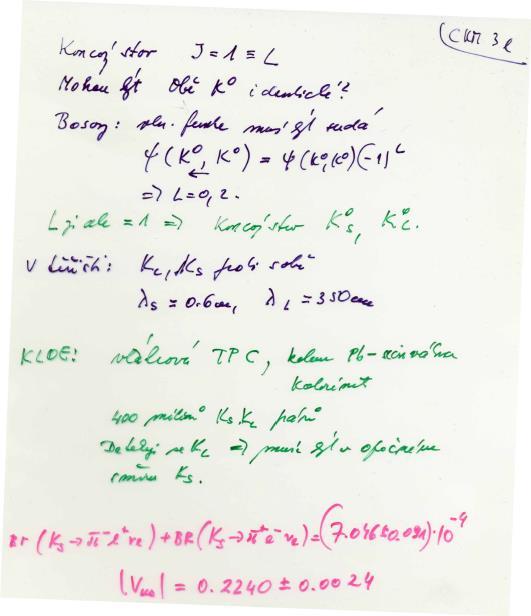 CKM 3l
Koncový stav J = 1 ≡ L
Mohou být obě K⁰ identické?
Bosony: vln. funkce musí být sudá
ψ(K⁰, K⁰) = ψ(K⁰,K⁰)(-1)ᴸ
⇒ L = 0, 2.
L je ale = 1 ⇒ koncový stav K⁰s, K⁰L.
V těžišti: KL, KS proti sobě
λs = 0.6cm, λL = 350cm
KLOE: TPC, kolem Pb-
kalorimetr
400 milionů KsKL párů
Detekuji se KL ⇒ musí být v opačném
směru Ks.
BR(Ks→π⁻e⁺νe)+BR(Ks→π⁺e⁻νe)=(7.046±0.091)·10⁻⁴
|Vus| = 0.2240 ± 0.0024